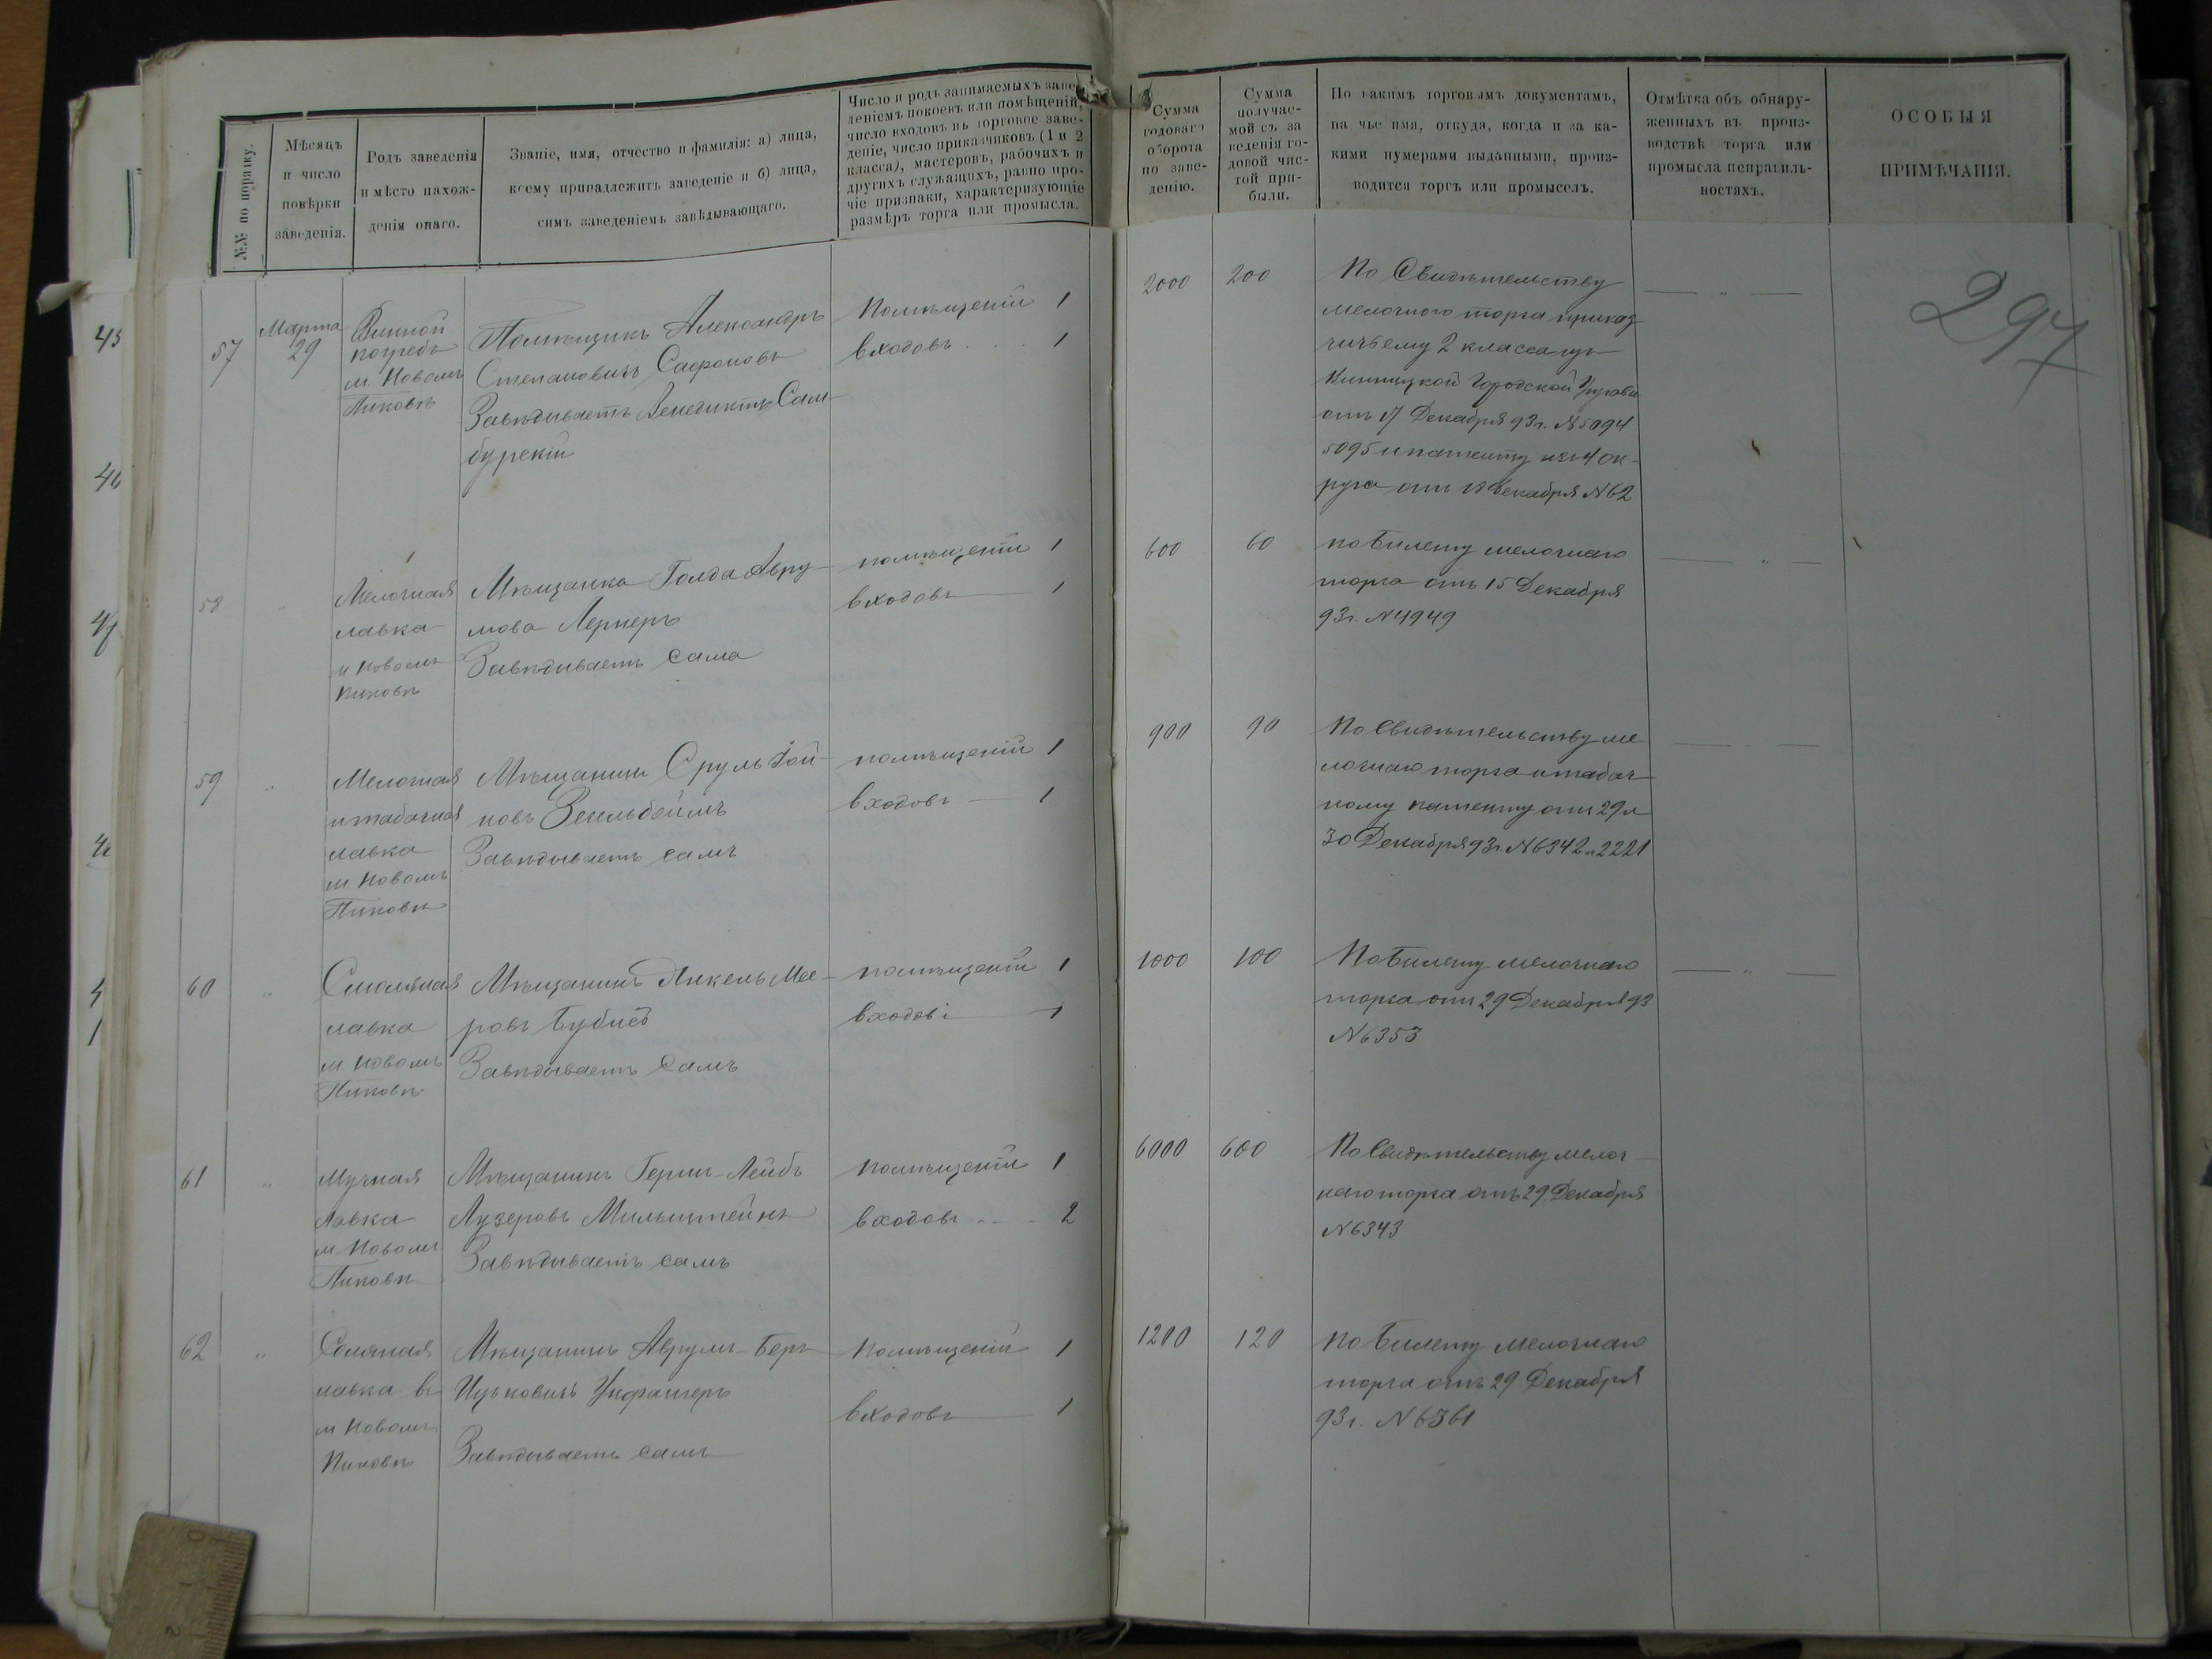 №№ по порядку.
Мѣсяцъ
и число
повѣрки
заведенія.
Родъ заведенія
и мѣсто нахож-
денія онаго.
Званіе, имя, отчество и фамилія: а) лица,
коему принадлежитъ заведеніе и б) лица,
симъ заведеніемъ завѣдывающаго.
Число и родъ занимаемыхъ заве-
деніемъ покоевъ или помѣщеній,
число входовъ въ торговое заве-
деніе, число приказчиковъ (1 и 2
класса), мастеровъ, рабочихъ и
другихъ служащихъ, равно про-
чіе признаки, характеризующіе
размѣръ торга или промысла.
Сумма
годоваго
оборота
по заве-
денію.
Сумма
получае-
мой съ за
веденія го-
довой чис-
той при-
были.
По какимъ торговымъ документамъ,
на чье имя, откуда, когда и за ка-
кими нумерами выданными, произ-
водится торгъ или промыселъ.
Отмѣтка объ обнару-
женныхъ въ произ-
водствѣ торга или
промысла неправиль-
ностяхъ.
ОСОБЫЯ
ПРИМѢЧАНІЯ.
297
57
Марта
29
Винной
погребъ
м. Новомъ
Пиковѣ
Помѣщикъ Александръ
Степановичъ Сафоновъ
Завѣдываетъ Венедиктъ Сам-
бурскій
Помѣщеній 1
входовъ . . . 1
2000
200
По Свидѣтельству
мелочного торга приказ-
чичьему 2 класса изъ
Городской Управы
отъ 17 Декабря 93г. №5094
5095 и патенту изъ 4 ок-
руга отъ 18 Декабря №62
58
"
Мелочная
лавка
м Новомъ
Пиковѣ
Мѣщанка Голда Авру-
мова Лернеръ
Завѣдываетъ сама
помѣщеній 1
входовъ 1
600
60
по билету мелочнаго
торга отъ 15 Декабря
93г. №4949
59
"
Мелочная
и табачная
лавка
м. Новомъ
Пиковѣ
Мѣщанинъ Сруль Іой-
новъ Зекельбоймъ
Завѣдываетъ самъ
помѣщеній 1
входовъ 1
900
90
По Свидѣтельству ме
лочнаго торга и табач
ному патенту отъ 29 и
30 Декабря 93г. №6342 и 2221
60
"
лавка
м. Новомъ
Пиковѣ
Мѣщанинъ Янкель Мее-
ровъ Бубисъ
Завѣдываетъ самъ
помѣщеній 1
входовъ 1
1000
100
По билету мелочнаго
торга отъ 29 Декабря 93
№6353
61
"
Мучная
лавка
м Новомъ
Пиковѣ
Мѣщанинъ Герш-Лейбъ
Лузеровъ Мильштейнъ
Завѣдываетъ самъ
помѣщеній 1
входовъ . . 2
6000
600
По Свидѣтельству мелоч-
наго торга отъ 29 Декабря
№6343
62
"
Соляная
лавка въ
м Новомъ
Пиковѣ
Мѣщанинъ Аврумъ-Беръ
Ицьковичъ
Завѣдываетъ самъ
Помѣщеній 1
входовъ 1
1200
120
по билету мелочнаго
торга отъ 29 Декабря
93г. №6361